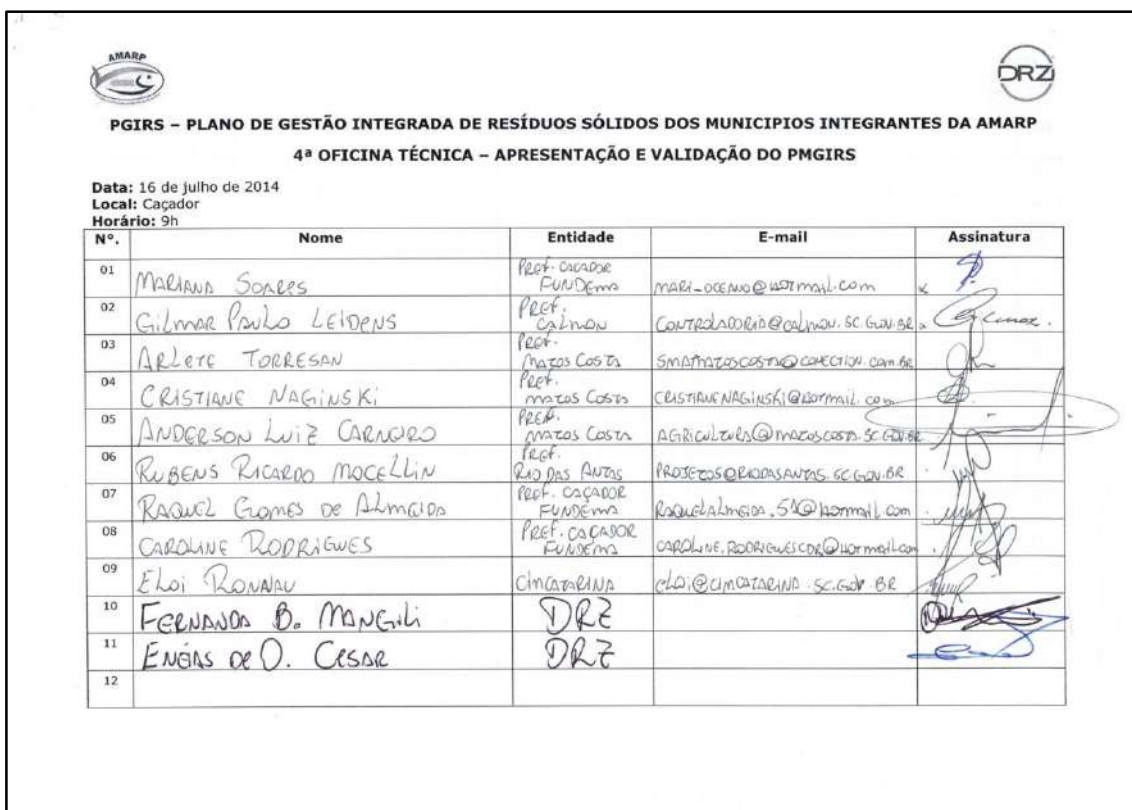 AMARP
DRZ
PGIRS – PLANO DE GESTÃO INTEGRADA DE RESÍDUOS SÓLIDOS DOS MUNICIPIOS INTEGRANTES DA AMARP
4ª OFICINA TÉCNICA – APRESENTAÇÃO E VALIDAÇÃO DO PMGIRS
Data: 16 de julho de 2014
Local: Caçador
Horário: 9h
Nº. Nome Entidade E-mail Assinatura
01 MARIANA SOARES PREF. CACADOR FUNDEMA MARI_OCEANO@HOTMAIL.COM
02 GILMAR PAULO LEIDENS PREF. CALMON CONTROLADORIA@CALMON.SC.GOV.BR
03 ARLETE TORRESAN PREF. MATOS COSTA SMAMATOSCOSTA@CONECTION.COM.BR
04 CRISTIANE NAGINSKI PREF. MATOS COSTA CRISTIANENAGINSKI@HOTMAIL.COM
05 ANDERSON LUIZ CARNEIRO PREF. MATOS COSTA AGRICULTURA@MATOSCOSTA.SC.GOV.BR
06 RUBENS RICARDO MOCELLIN PREF. RIO DAS ANTAS PROJETOS@RIODASANTAS.SC.GOV.BR
07 RAQUEL GOMES DE ALMEIDA PREF. CAÇADOR FUNDEMA RAQUELALMEIDA.51@HOTMAIL.COM
08 CAROLINE RODRIGUES PREF. CAÇADOR FUNDEMA CAROLINE.RODRIGUESCDR@HOTMAIL.COM
09 ELOI RONNAU CINCATARINA ELOI@CINCATARINA.SC.GOV.BR
10 FERNANDA B. MANGILI DRZ
11 ENÉIAS DE O. CESAR DRZ
12